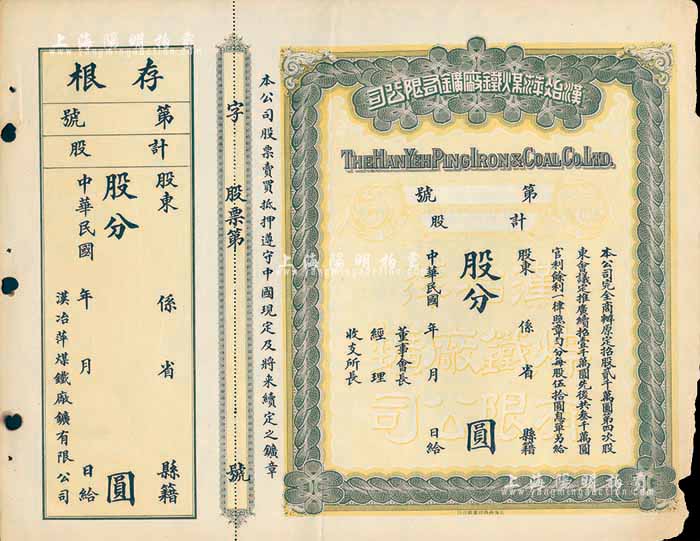 漢冶萍煤鐵廠鑛有限公司
THE HAN YEH PING IRON & COAL CO. LTD.
第 號
計 股
本公司完全商辦原定招股貳千萬圓第四次股
東會議定推廣續招壹千萬圓先後共叁千萬圓
官利餘利一律照章勻分每股伍拾圓息單另給
股東 係 省 縣籍
股分 圓
中華民國 年 月 日給
董事會長
經理
收支所長
本公司股票賣買抵押遵守中國現定及將來續定之鑛章
字 股票第 號
存根
第 號
計 股
股東 係 省 縣籍
股分 圓
中華民國 年 月 日給
漢冶萍煤鐵廠鑛有限公司
上海陽明拍賣
上海陽明拍賣
上海陽明拍賣
www.yangmingauction.com